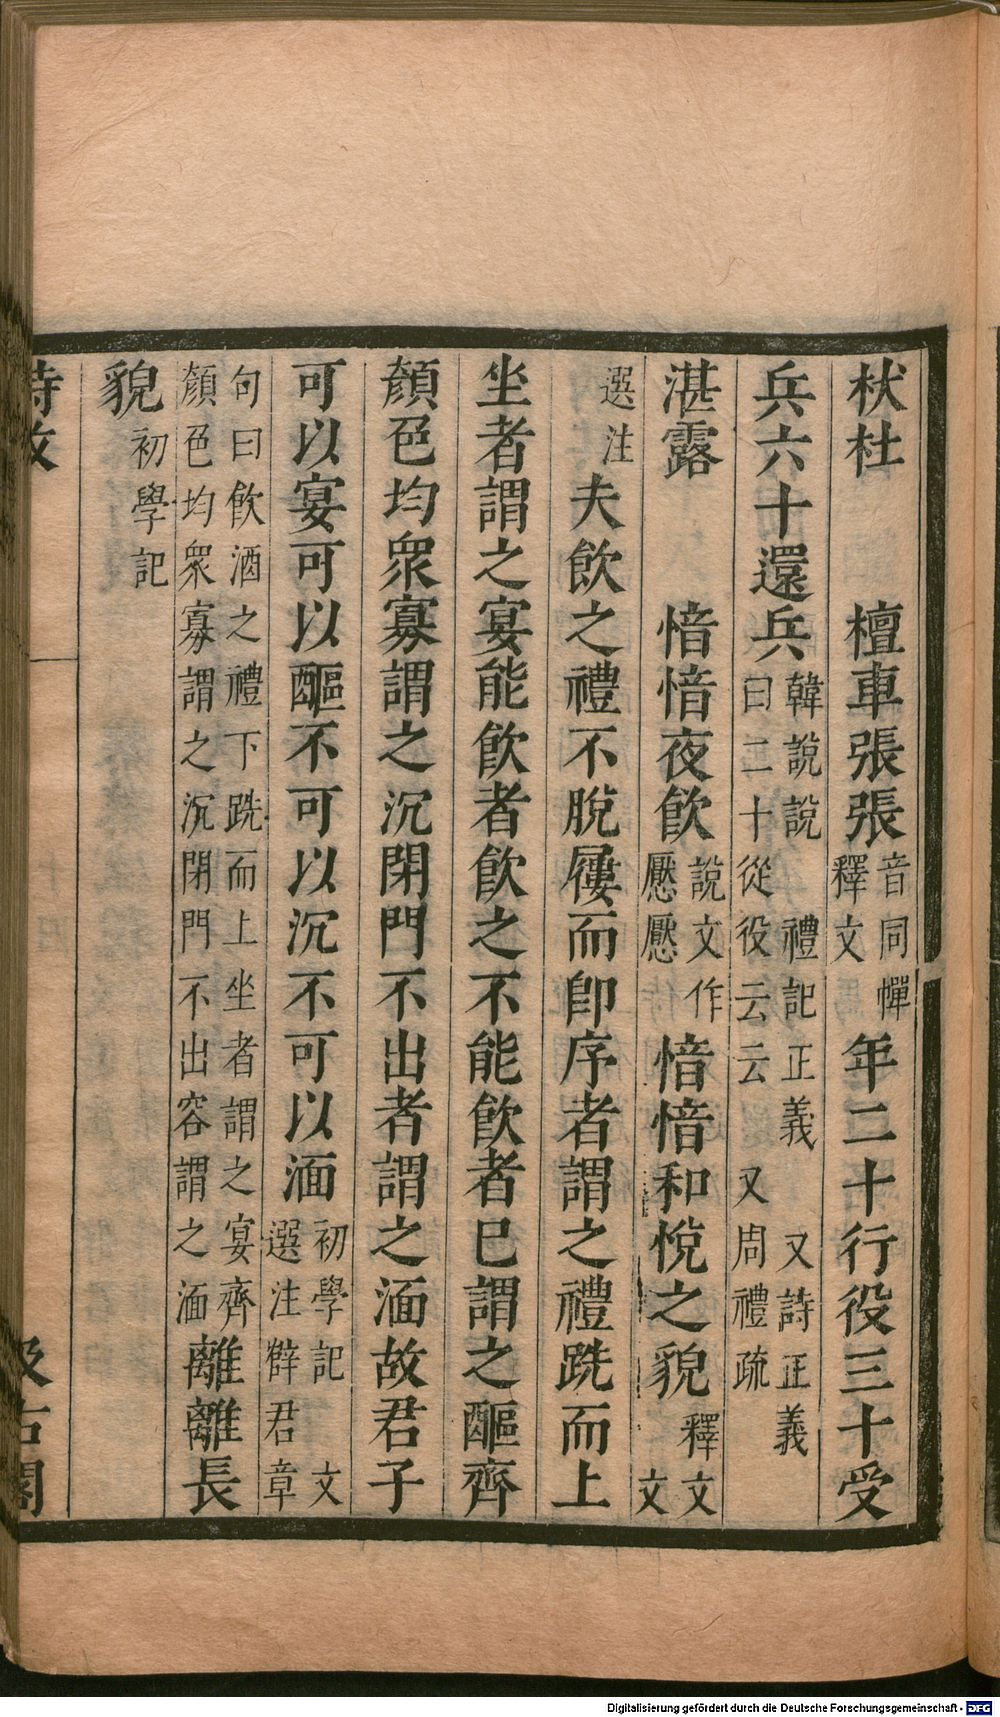 杕杜 檀車張張 音同幝 釋文 年二十行役三十受
兵六十還兵 韓說說 禮記正義 又詩正義 曰二十從役云云 又周禮疏
湛露 愔愔夜飲 說文作 懕懕 愔愔和悅之貌 釋文 文
選注 夫飲之禮不脫屨而即序者謂之禮跣而上
坐者謂之宴能飲者飲之不能飲者已謂之醧齊
顏色均衆寡謂之沉閉門不出者謂之湎故君子
可以宴可以醧不可以沉不可以湎 初學記 文 選注薛君章
句曰飲酒之禮下跣而上坐者謂之宴齊 顏色均衆寡謂之沉閉門不出容謂之湎 離離長
貌 初學記
詩攷 汲古閣
Digitalisierung gefördert durch die Deutsche Forschungsgemeinschaft - DFG